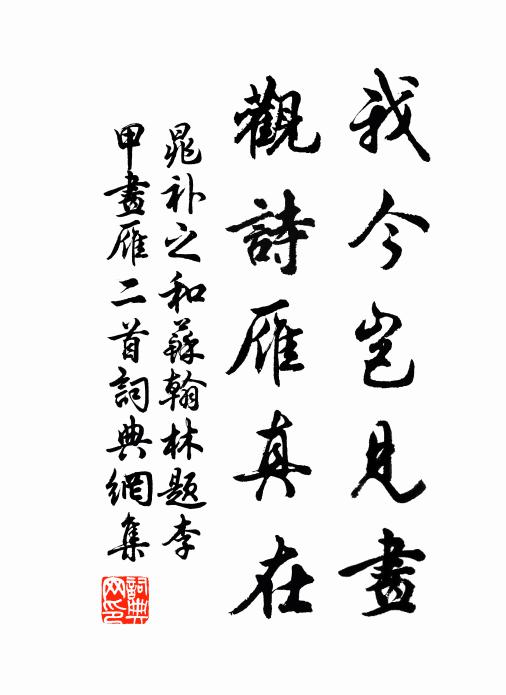 我今豈見畫
觀詩雁真在
晁补之和蘇翰林题李
甲畫雁二首詞典網集
詞典
网印